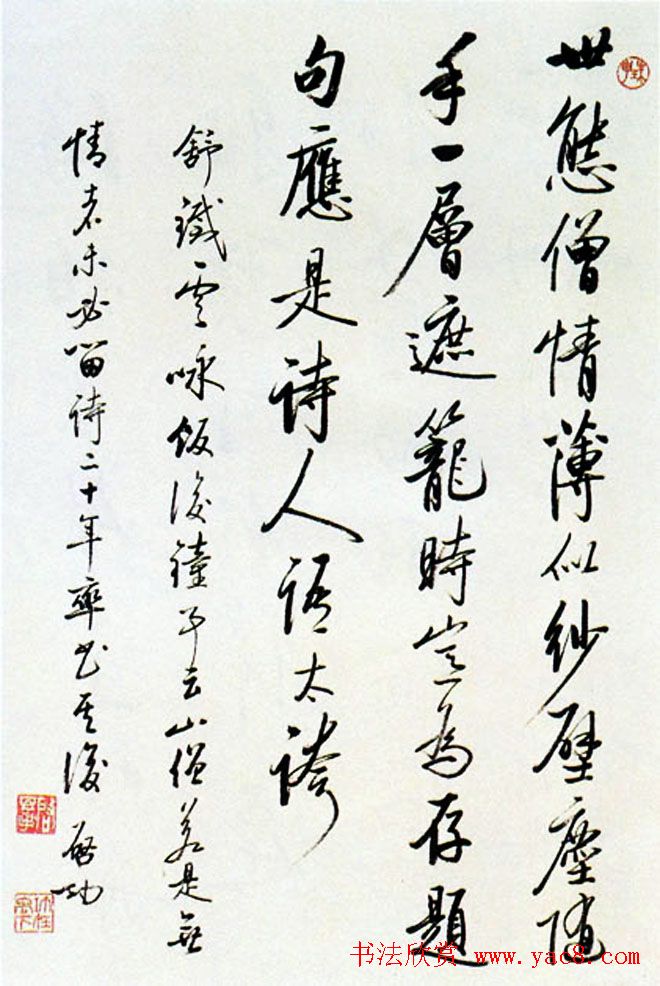 世態僧情薄似紗壁塵隨
手一層遮籠時豈為存題
句應是詩人語太誇
舒鐵雲咏飯後鐘事云山僧若是無
情者未必留詩二十年率書其後 啟功
书法欣赏 www.yac8.com